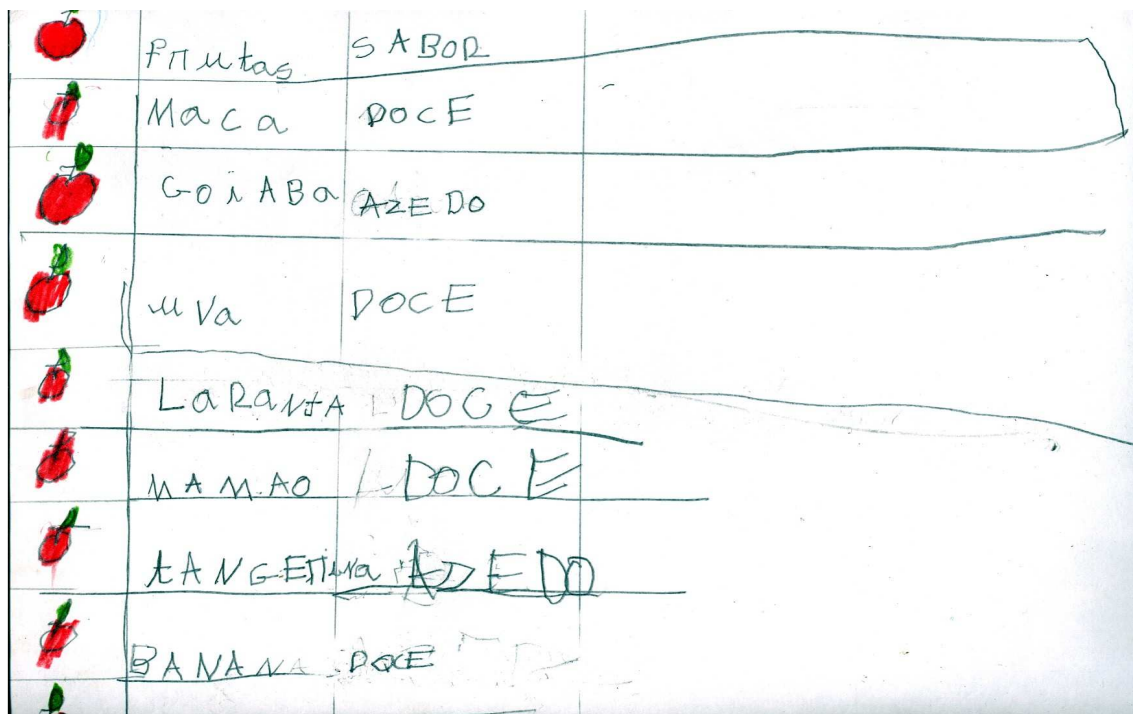 Frutas SABOR
Maca DOCE
GOiABa AZEDO
uva DOCE
LaRaNJA DOCE
MAMAO DOCE
tANGERina AZEDO
BANANA DOCE